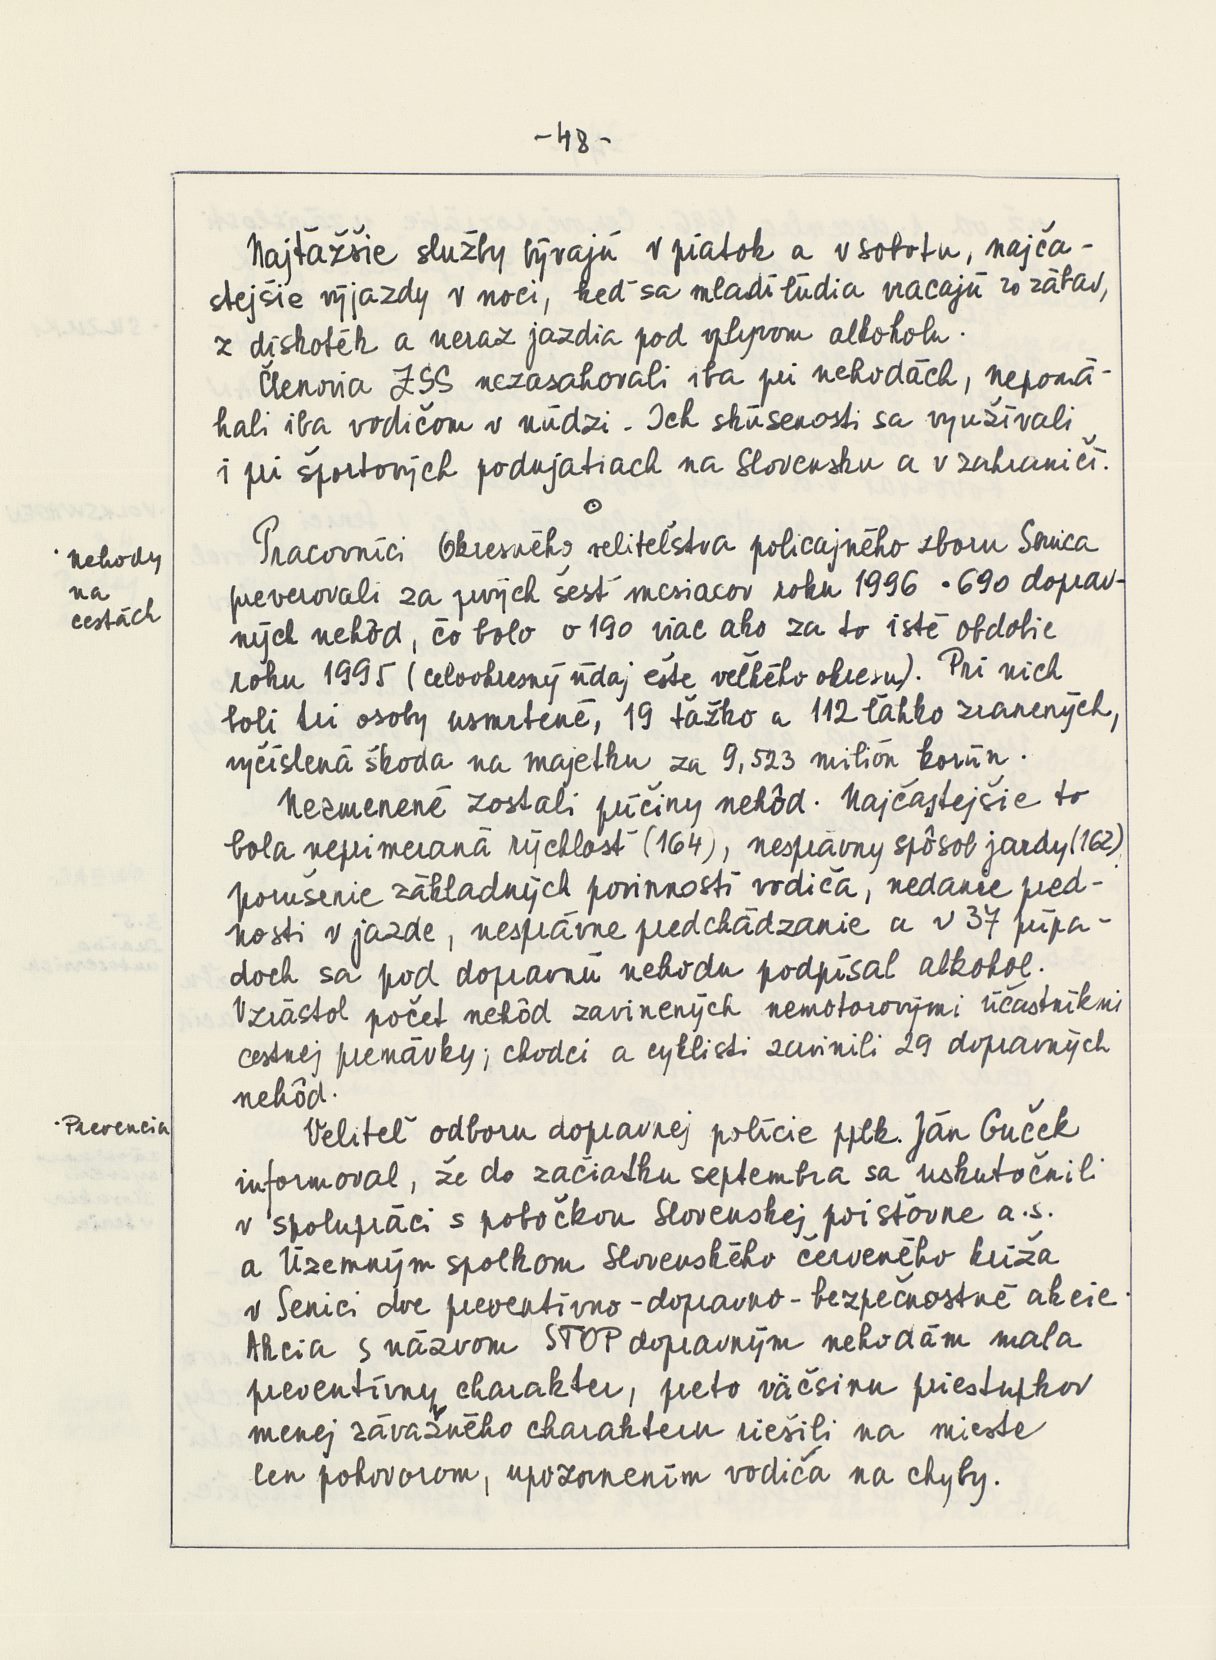 -48-
Najťažšie služby bývajú v piatok a v sobotu, najča-
stejšie výjazdy v noci, keď sa mladí ľudia vracajú zo zábav,
z diskoték a neraz jazdia pod vplyvom alkoholu.
Členovia ZSS nezasahovali iba pri nehodách, nepomá-
hali iba vodičom v núdzi. Ich skúsenosti sa využívali
i pri športových podujatiach na Slovensku a v zahraničí.
· nehody
na
cestách
Pracovníci Okresného veliteľstva policajného zboru Senica
preverovali za prvých šesť mesiacov roku 1996 · 690 doprav-
ných nehôd, čo bolo o 190 viac ako za to isté obdobie
roku 1995 (celookresný údaj ešte veľkého okresu). Pri nich
boli tri osoby usmrtené, 19 ťažko a 112 ľahko zranených,
vyčíslená škoda na majetku za 9,523 milión korún.
Nezmenené zostali príčiny nehôd. Najčastejšie to
bola neprimeraná rýchlosť (164), nesprávny spôsob jazdy (162)
porušenie základných povinností vodiča, nedanie pred-
nosti v jazde, nesprávne predchádzanie a v 37 prípa-
doch sa pod dopravnú nehodu podpísal alkohol.
Vzrástol počet nehôd zavinených nemotorovými účastníkmi
cestnej premávky; chodci a cyklisti zavinili 29 dopravných
nehôd.
· Prevencia
Veliteľ odboru dopravnej polície pplk. Ján Guček
informoval, že do začiatku septembra sa uskutočnili
v spolupráci s pobočkou Slovenskej poisťovne a.s.
a Územným spolkom Slovenského červeného kríža
v Senici dve preventívno-dopravno-bezpečnostné akcie.
Akcia s názvom STOP dopravným nehodám mala
preventívny charakter, preto väčšinu priestupkov
menej závažného charakteru riešili na mieste
len pohovorom, upozornením vodiča na chyby.